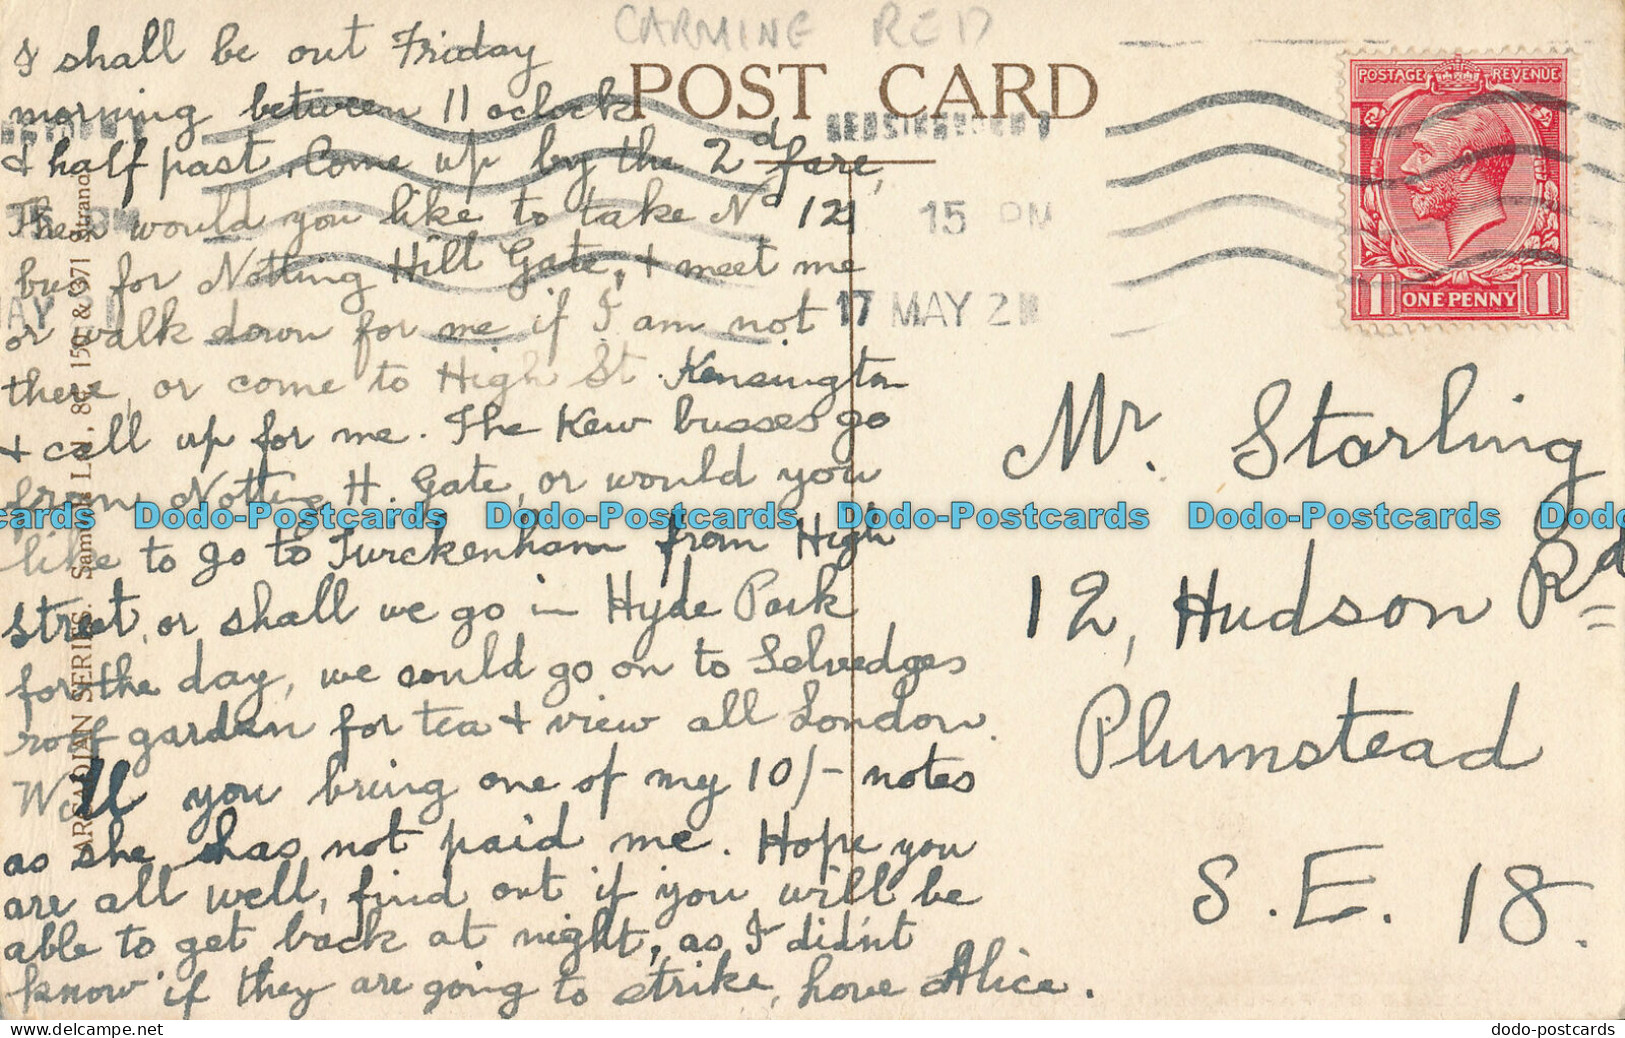 CARMINE RED
POST CARD
I shall be out Friday
morning between 11 oclock
& half past. Come up by the 2d fare,
Then would you like to take No 12
bus for Notting Hill Gate, & meet me
or walk down for me if I am not
there, or come to High St. Kensington
& call up for me. The Kew busses go
from Notting H. Gate, or would you
like to go to Turckenham from High
Street, or shall we go in Hyde Park
for the day, we could go on to Selvedges
roof garden for tea & view all London.
Will you bring one of my 10/- notes
as she has not paid me. Hope you
are all well, find out if you will be
able to get back at night, as I did'nt
know if they are going to strike, love Alice.
POSTAGE REVENUE
1 ONE PENNY 1
15 PM
17 MAY 2
Mr. Starling
12, Hudson Rd
Plumstead
S.E. 18.
SERIES.
Dodo-Postcards Dodo-Postcards Dodo-Postcards Dodo-Postcards
delcampe.net
dodo-postcards